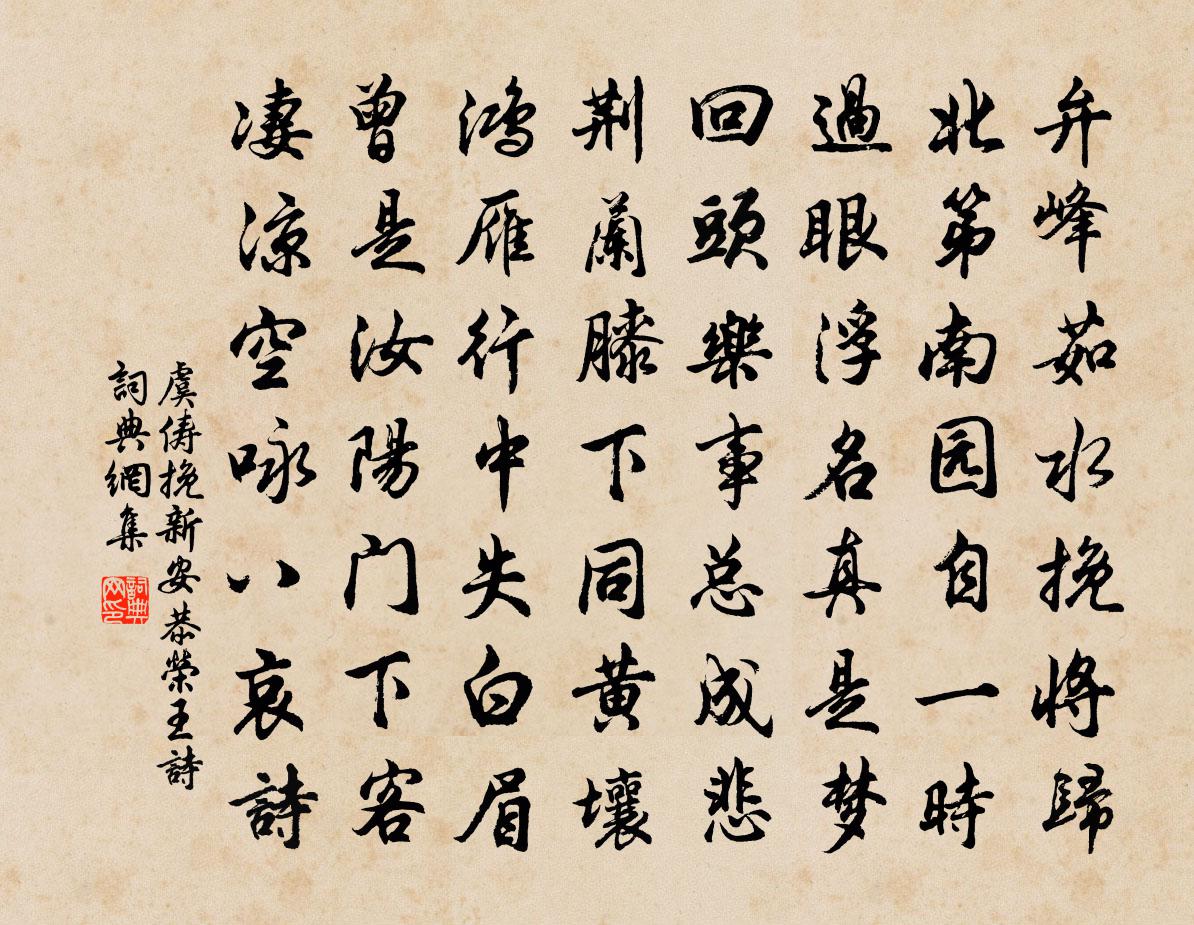 弁峰茹水挽將歸
北第南园自一時
過眼浮名真是梦
回頭樂事总成悲
荆蘭膝下同黄壤
鴻雁行中失白眉
曾是汝陽门下客
凄凉空咏八哀詩
虞俦挽新安恭榮王詩
詞典網集
詞典网印